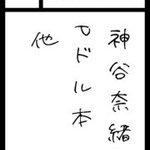 神谷奈緒
Pドル本
他